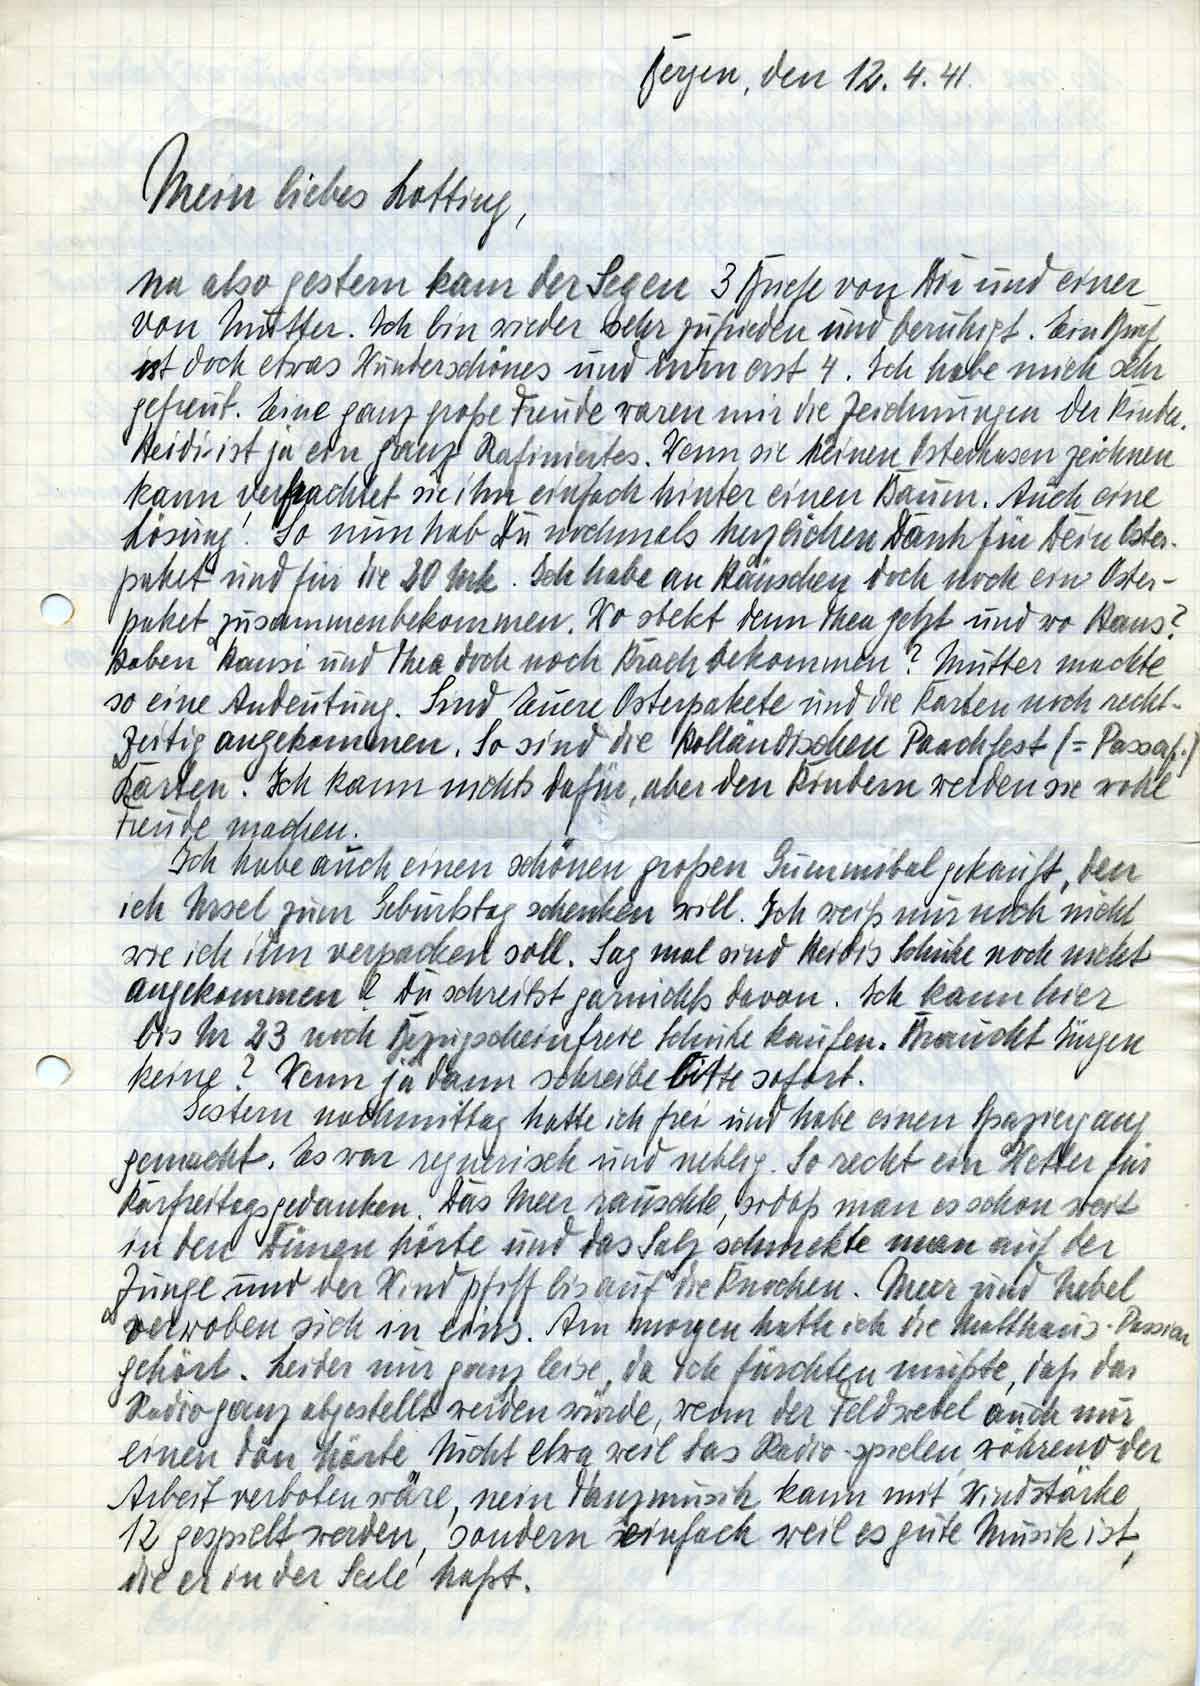 Bergen, den 12.4.41.
Mein liebes Lotting,
na also gestern kam der Segen 3 Briefe von Dir und einer
von Mutter. Ich bin wieder sehr zufrieden und beruhigt. Ein Brief
ist doch etwas Wunderschönes und nun erst 4. Ich habe mich sehr
gefreut. Eine ganz große Freude waren mir die Zeichnungen der Kinder.
Heidi ist ja ein ganz Rafiniertes. Wenn sie keinen Osterhasen zeichnen
kann verfrachtet sie ihn einfach hinter einen Baum. Auch eine
Lösung! So nun hab Du nochmals herzlichen Dank für Dein Oster-
paket und für die 20 Mrk. Ich habe an Häuschen doch noch ein Oster-
paket zusammenbekommen. Wo stekt denn Thea jetzt und wo Hans?
Haben Hansi und Thea doch noch Krach bekommen? Mutter machte
so eine Andeutung. Sind Euere Osterpakete und die Karten noch recht-
zeitig angekommen. So sind die Holländischen Paachfest (= Passaf.)
Karten. Ich kann nichts dafür, aber den Kindern werden sie wohl
Freude machen.
Ich habe auch einen schönen großen Gummibal gekauft, den
ich Ursel zum Geburtstag schenken will. Ich weiß nur noch nicht
wie ich ihn verpacken soll. Sag mal sind Heidis Schuhe noch nicht
angekommen? Du schreibst garnichts davon. Ich kann hier
bis Nr 23 noch Bezugscheinfreie Schuhe kaufen. Braucht Jürgen
keine? Wenn ja dann schreibe bitte sofort.
Gestern nachmittag hatte ich frei und habe einen Spaziergang
gemacht. Es war regnerisch und neblig. So recht ein Wetter für
Karfreitagsgedanken. Das Meer rauschte, sodaß man es schon weit
in den Dünen hörte und das Salz schmekte man auf der
Zunge und der Wind pfiff bis auf die Knochen. Meer und Nebel
verwoben sich in eins. Am morgen hatte ich die Matthäus-Passion
gehört. Leider nur ganz leise, da ich fürchten mußte, daß das
Radio ganz abgestellt werden würde, wenn der Feldwebel auch nur
einen Ton hörte. Nicht etwa weil das Radio-spielen während der
Arbeit verboten wäre, nein Tanzmusik kann mit Windstärke
12 gespielt werden, sondern einfach weil es gute Musik ist,
die er in der Seele haßt.